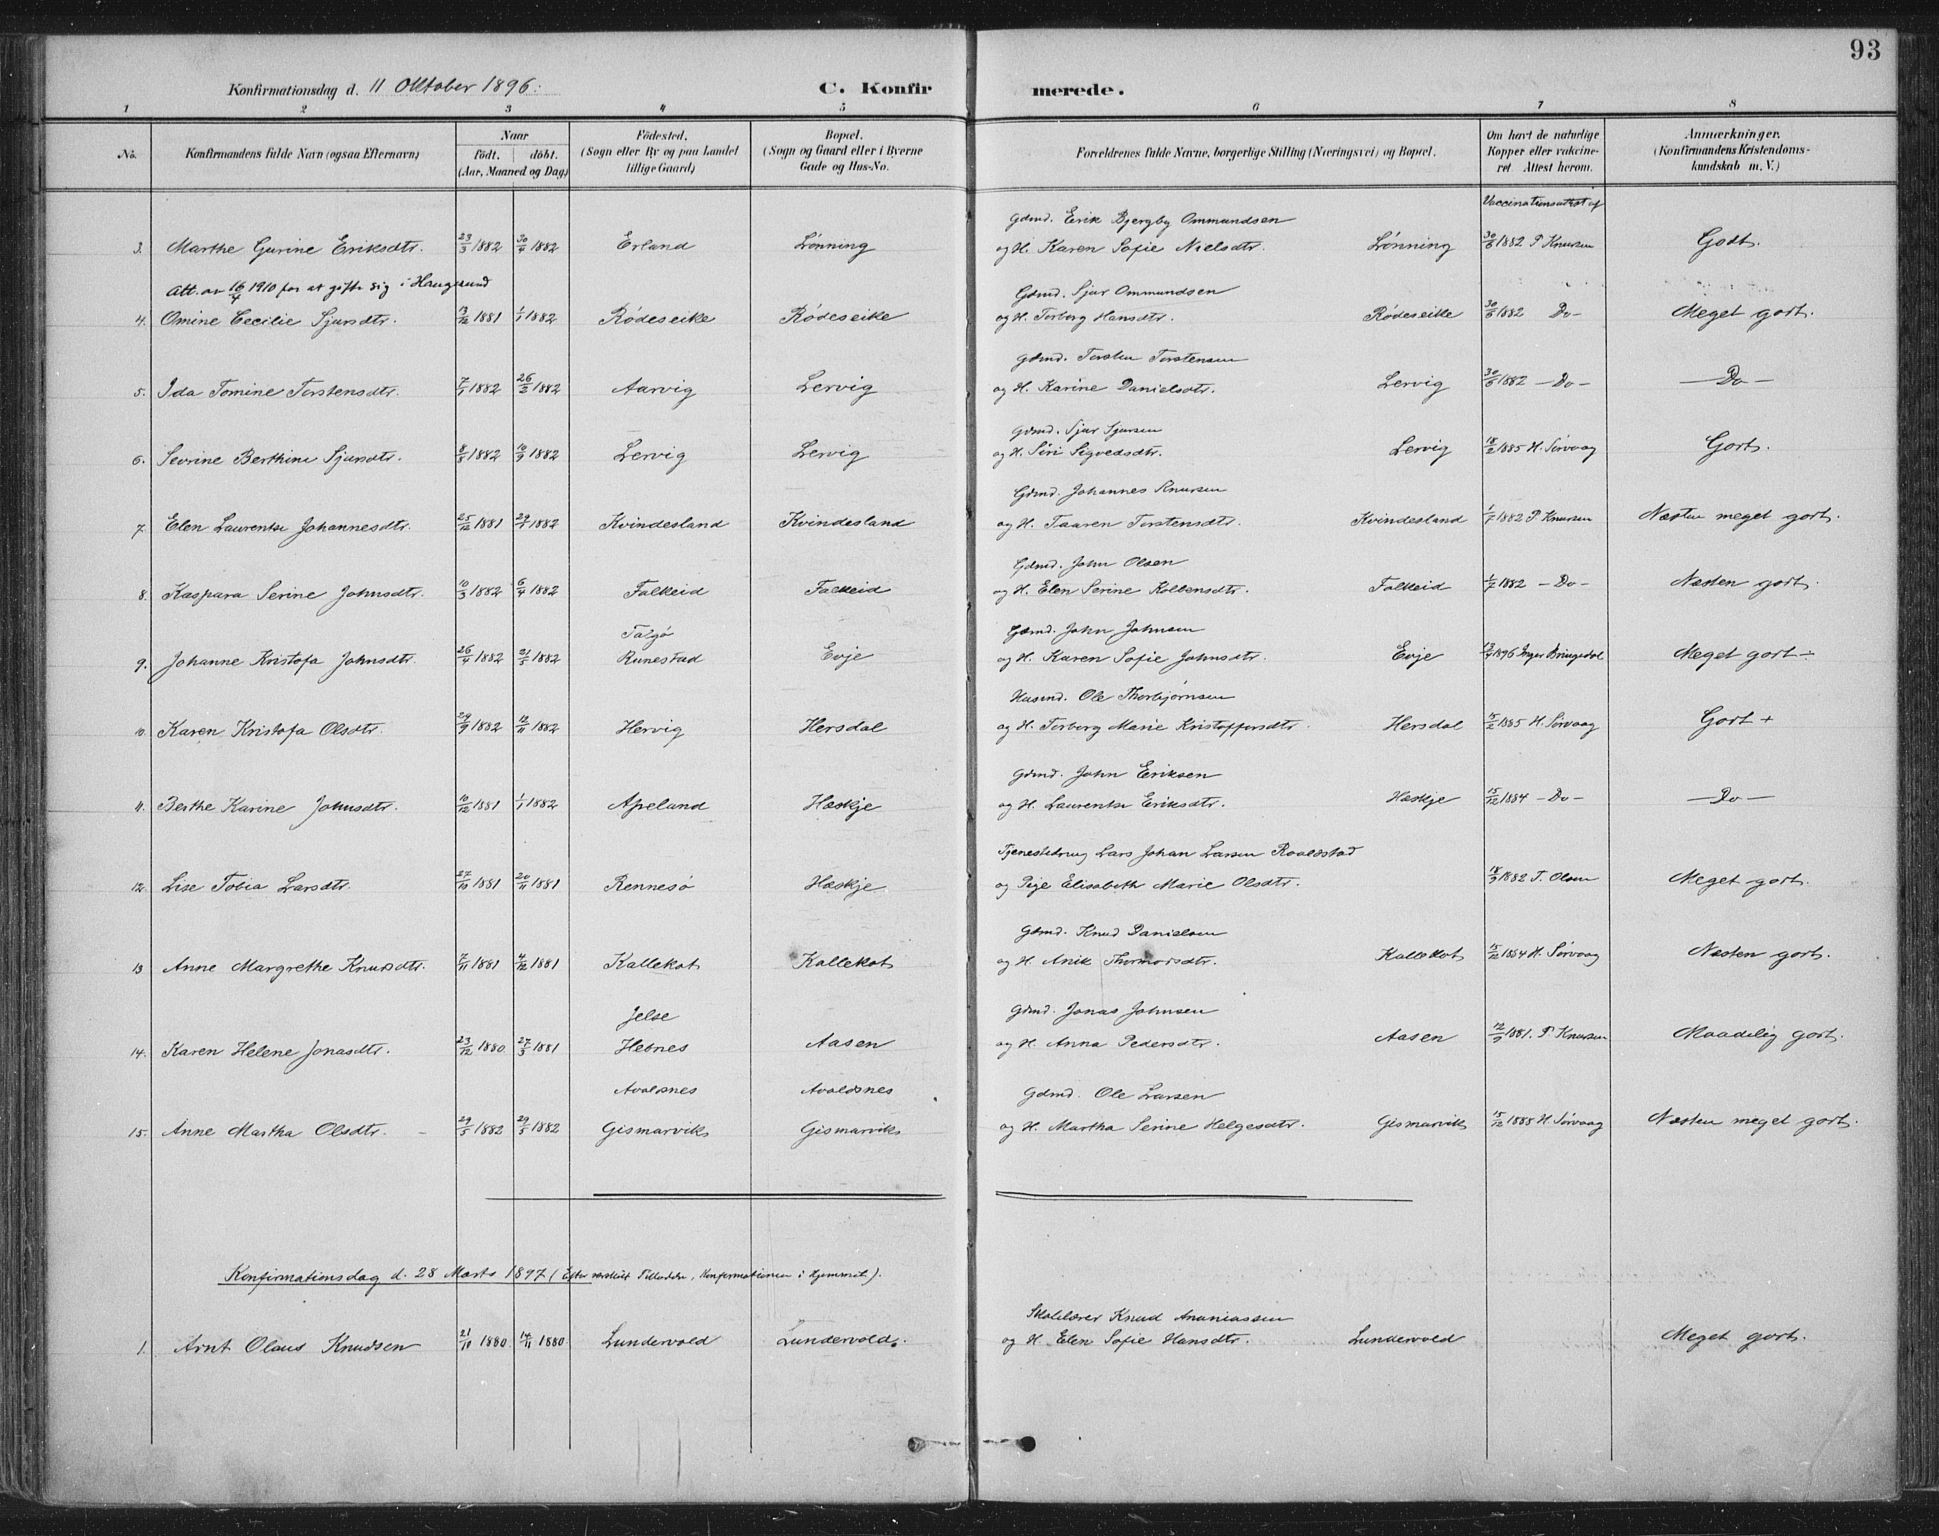 93
Konfirmationsdag d. 11 Oktober 1896. C. Konfirmerede.
1 2 3 4 5 6 7 8
No. Konfirmandens fulde Navn (ogsaa Efternavn) Naar født. døbt. (Aar, Maaned og Dag) Fødested. (Sogn eller By og paa Landet tillige Gaard) Bopæl. (Sogn og Gaard eller i Byerne Gade og Hus-No. Forældrenes fulde Navne, borgerlige Stilling (Næringsvei) og Bopæl. Om havt de naturlige Kopper eller vaccineret. Attest herom. Anmærkninger. (Konfirmandens Kristendomskundskab m. V.)
Vaccinationsattest af
Gdmd. Erik Bjergby Ommundsen
3. Marthe Gurine Eriksdtr. 23/3 1882 30/4 1882 Erland Lønning og H. Karen Sofie Nielsdtr. Lønning 30/6 1882 P Knutsen Godt.
Att. av 16/4 1910 for at gifte sig i Haugesund
Gdmd. Sjur Ommundsen
4. Omine Cecilie Sjursdtr. 13/12 1881 1/1 1882 Rødeseike Rødeseike og H. Torborg Hansdtr. Rødeseike 30/6 1882 Do- Meget godt.
Gdmd. Torsten Torstensen
5. Ida Tomine Torstensdtr. 7/1 1882 26/2 1882 Aarvig Lervig og H. Karine Danielsdtr. Lervig 30/6 1882 -Do- -Do-
Gdmd. Sjur Sjursen
6. Sevrine Berthine Sjursdtr. 8/8 1882 10/9 1882 Lervig Lervig og H. Siri Sigvedsdtr. Lervig 18/2 1885 H. Sørvaag Godt.
Gdmd. Johannes Knutsen
7. Elen Laurentse Johannesdtr. 25/12 1881 29/1 1882 Kvindesland Kvindesland og H. Taaren Torstensdtr. Kvindesland 1/7 1882 P Knutsen Næsten meget godt.
Gdmd. John Olsen
8. Kaspara Serine Johnsdtr. 10/3 1882 6/4 1882 Falkeid Falkeid og H. Elen Serine Kolbensdtr. Falkeid 1/7 1882 -Do- Næsten godt.
Talgø Gdmd. John Johnsen
9. Johanne Kristofa Johnsdtr. 26/4 1882 21/5 1882 Runestad Evje og H. Karen Sofie Johnsdtr. Evje 13/4 1896 Inger Bringedal Meget godt ÷
Husmd. Ole Thorbjørnsen
10. Karen Kristofa Olsdtr. 29/9 1882 12/11 1882 Hervig Hersdal og H. Torborg Marie Kristoffersdtr. Hersdal 15/2 1885 H. Sørvaag Godt +
Gdmd. John Eriksen
11. Berthe Karine Johnsdtr. 10/12 1881 1/1 1882 Apeland Hæskje og H. Laurentse Eriksdtr. Hæskje 15/12 1884 -Do- -Do-
Tjenestedreng Lars Johan Larsen Roaldstad
12. Lise Tobia Larsdtr. 27/10 1881 20/11 1881 Rennesø Hæskje og Pige Elisabeth Marie Olsdtr. 18/9 1882 T. Olsen Meget godt.
Gdmd. Knud Danielsen
13 Anne Margrethe Knutsdtr. 7/11 1881 4/12 1881 Kallekot Kallekot og H. Anik Thormodsdtr. Kallekot 15/12 1884 H. Sørvaag Næsten godt.
Jelse Gdmd. Jonas Johnsen
14. Karen Helene Jonasdtr. 23/12 1880 27/3 1881 Hebnes Aasen og H. Anna Pedersdtr. Aasen 12/9 1881. P Knutsen Maadelig godt.
Avaldsnes Avaldsnes Gdmd. Ole Larsen
15. Anne Martha Olsdtr. 29/3 1882 29/5 1882 Gismarvik Gismarvik og H. Martha Serine Helgesdtr. Gismarvik 15/12 1885 H. Sørvaag Næsten meget godt.
Konfirmationsdag d. 28 Marts 1897 (Efter særskilt Tilladelse, Konfirmationen i Hjemmet).
Skolelærer Knud Ananiassen
1. Arnt Olaus Knudsen 21/10 1880 14/11 1880 Lundervold Lundervold. og H. Elen Sofie Hansdtr. Lundervold Meget godt.